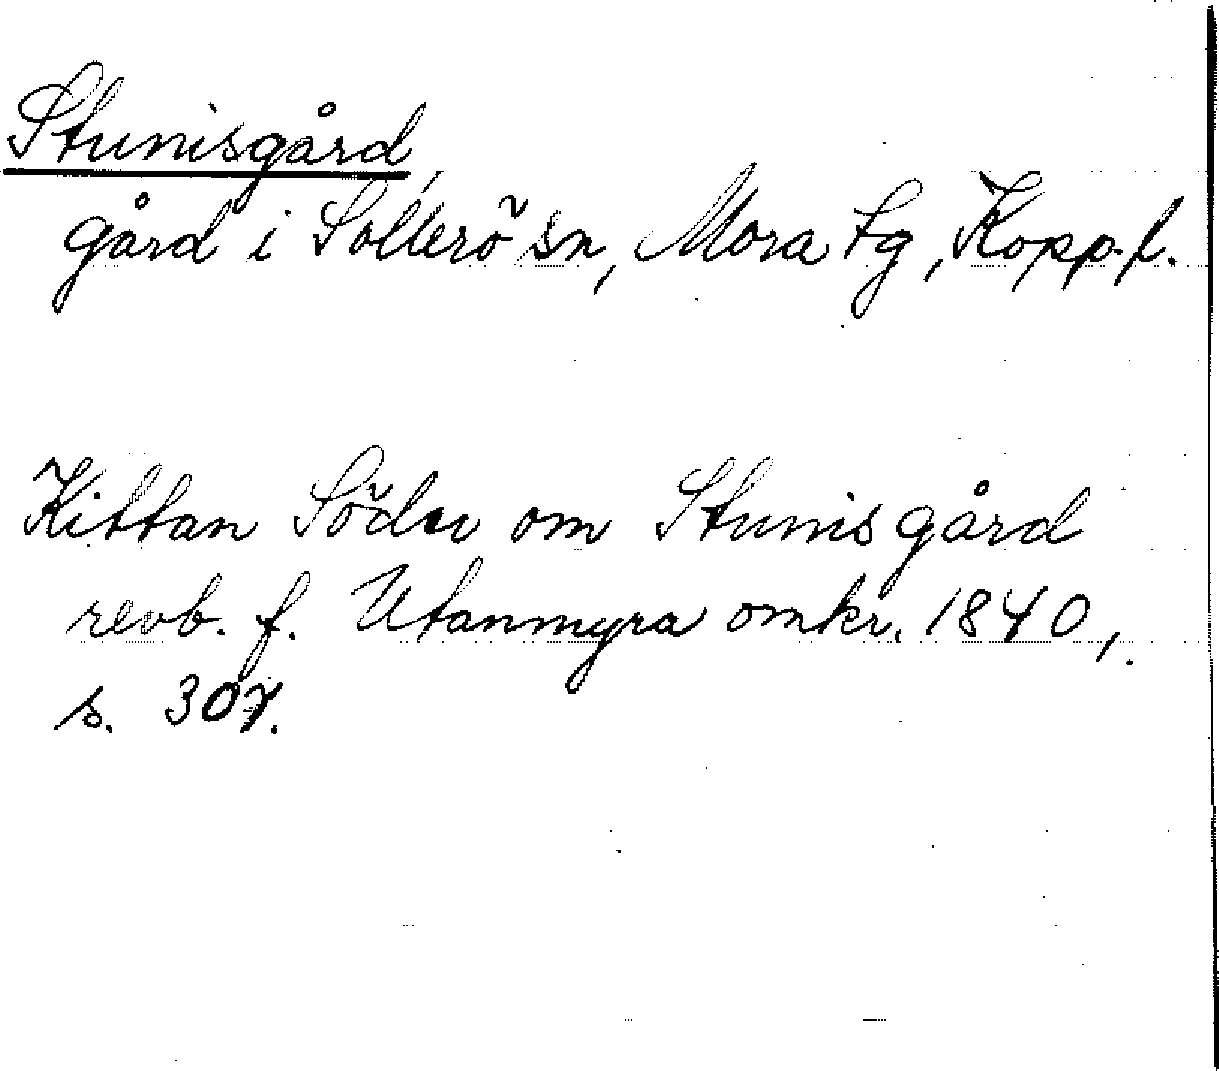 Stunisgård
gård i Sollerö sn, Mora tg, Kopp. l.
Kittan Söder om Stunisgård
revb. f. Utanmyra omkr. 1840,
s. 307.